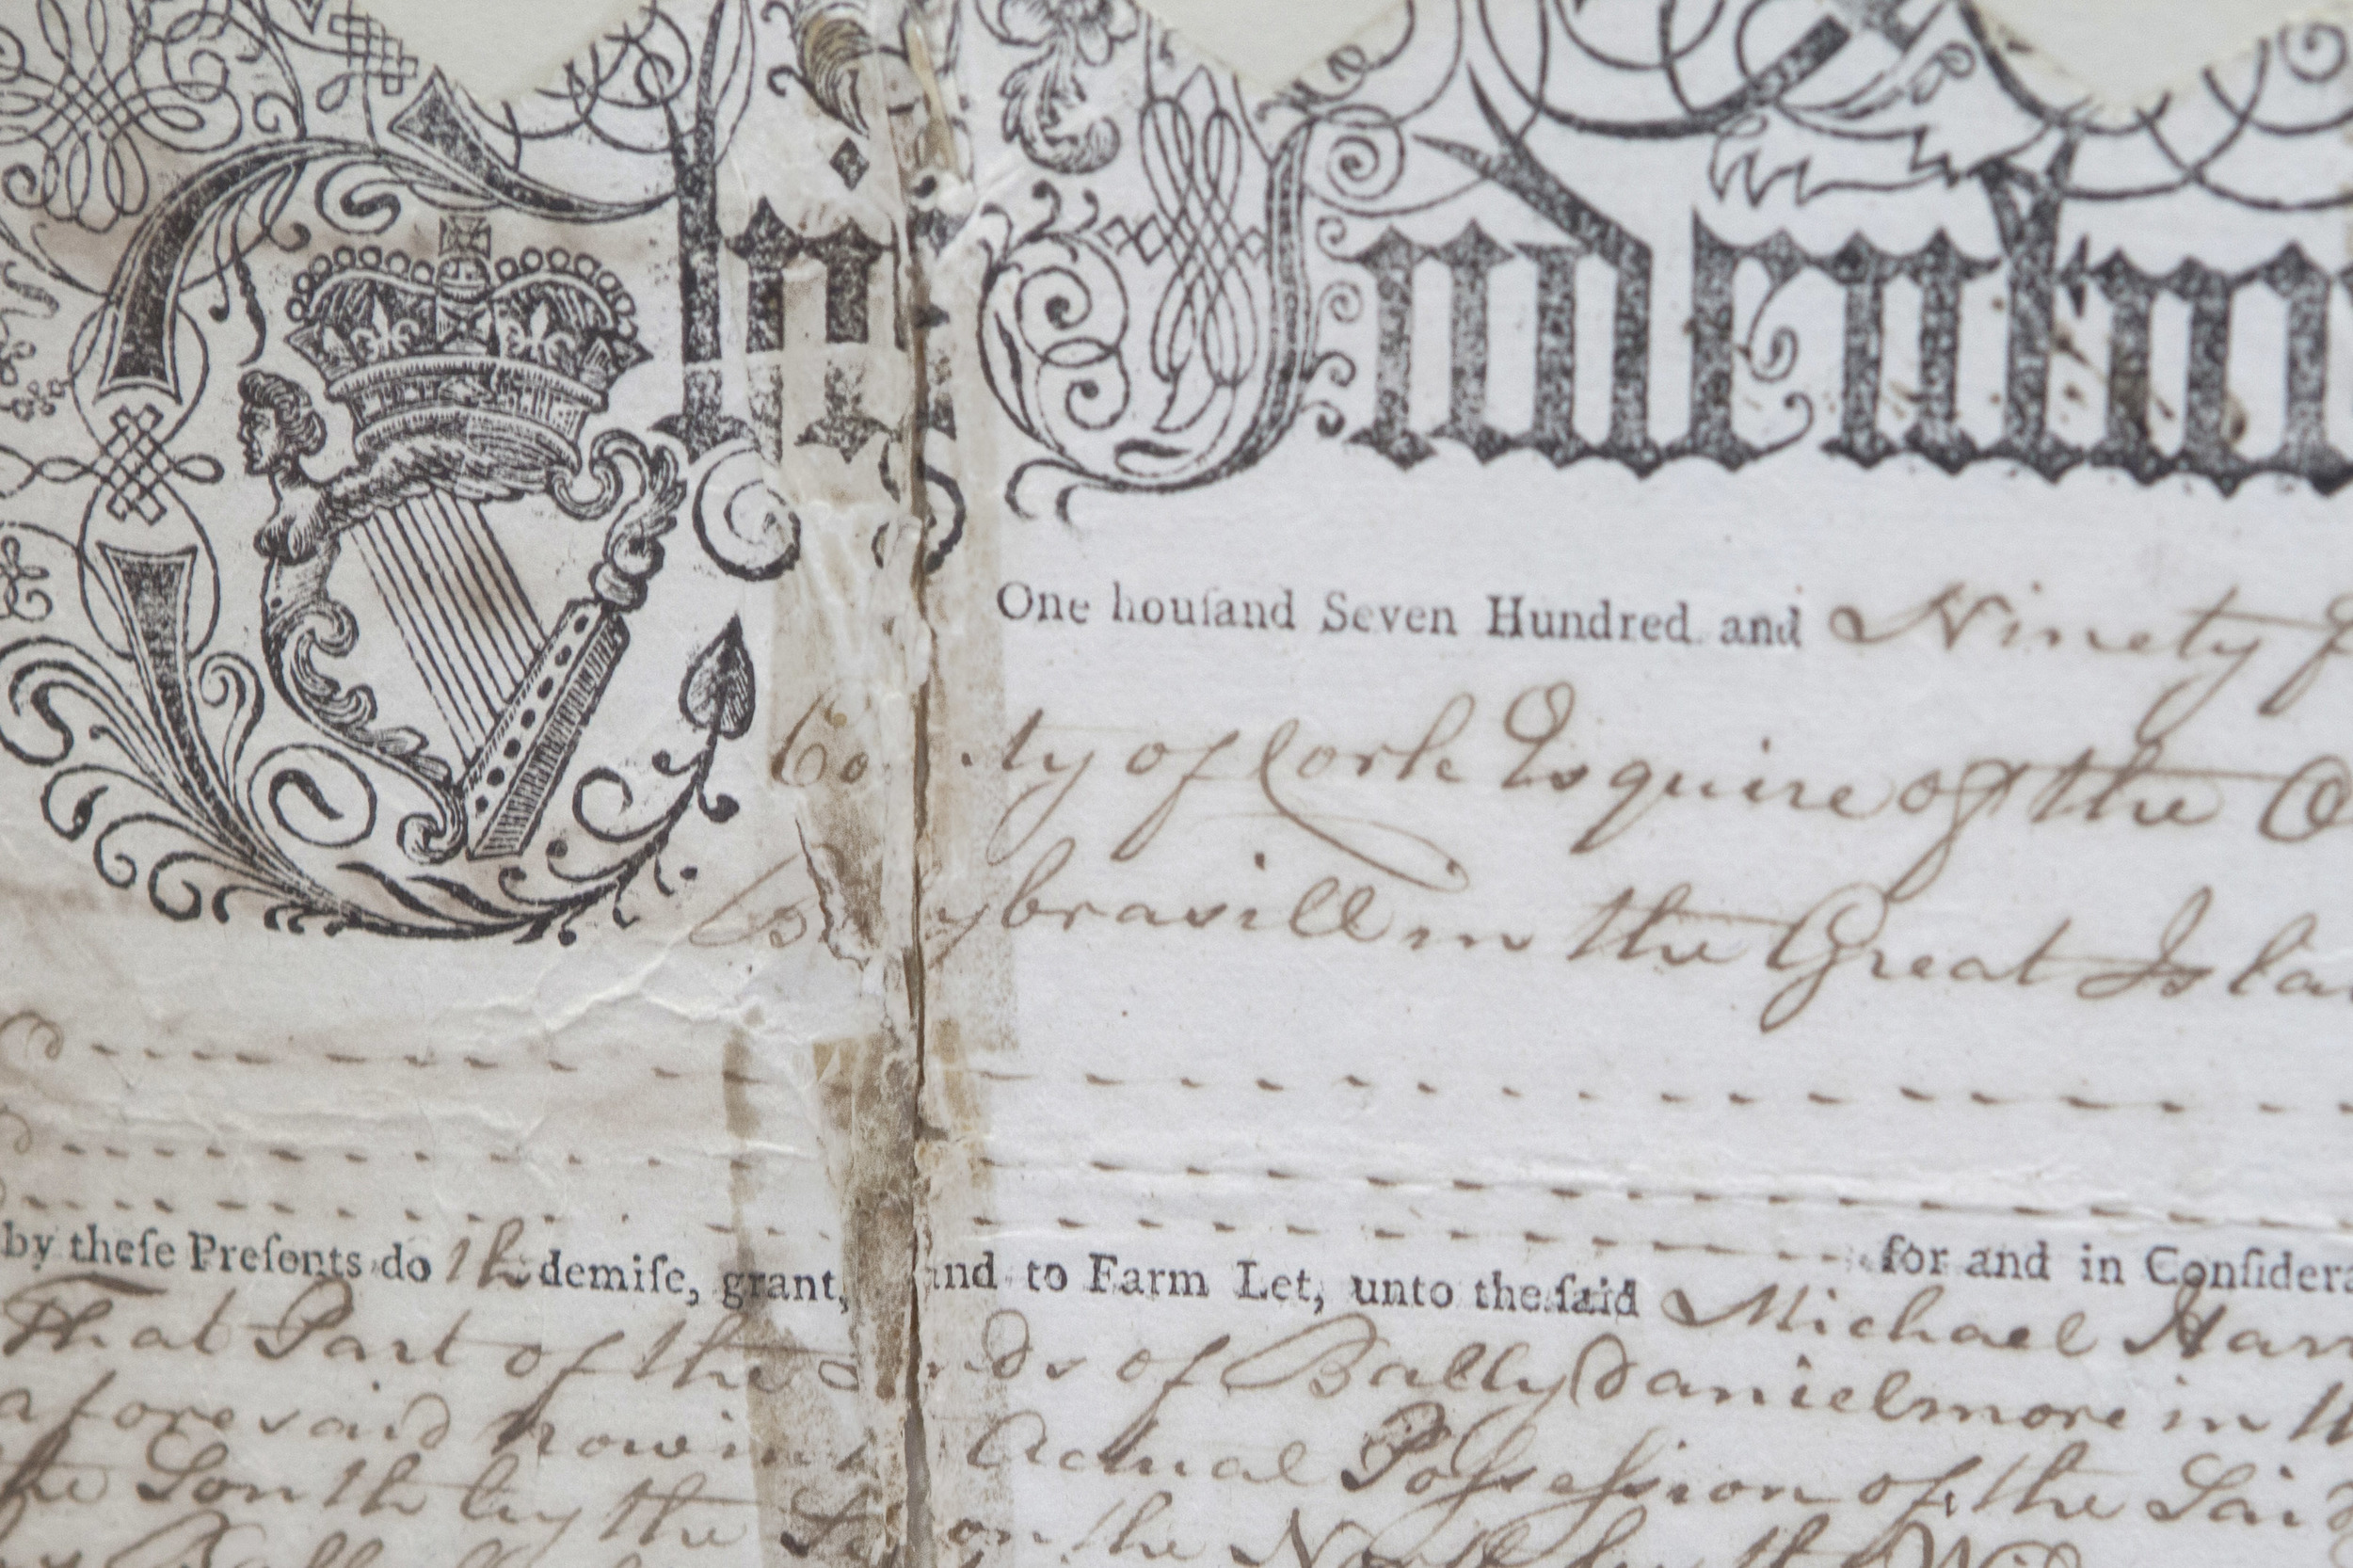 This Indentur
One housand Seven Hundred and Ninety f
Co ty of Cork Esquire of the O
B ybrasill in the Great Isla
by theſe Preſents do th demiſe, grant, and to Farm Let, unto the ſaid Michael Harr for and in Conſidera
That Part of the nds of Ballydanielmore in th
aforesaid now in Actual Poſseſsion of the Said
the South by the on the North by the